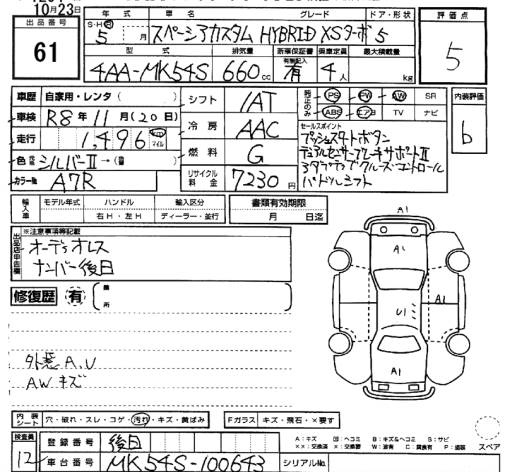 10月23日
出品番号
61
年式 車名 グレード ドア・形状
S・H・R
5 月 スペーシアカスタム HYBRID XSターボ 5
型式 排気量 新車保証書 乗車定員 最大積載量
4AA-MK54S 660cc 有 4人 kg
評価点
5
車歴 自家用・レンタ( )
車検 R8年11月(20日)
走行 1,496 km マイル
色 シルバーII→( )
カラーNo. A7R
シフト IAT
冷房 AAC
燃料 G
リサイクル料金 7230円
PS PW AW SR
ABS エアB TV ナビ
セールスポイント
プッシュスタートボタン
デュアルセンサーブレーキサポートII
アダプティブクルーズコントロール
パドルシフト
内装評価
b
輸入車 モデル年式 ハンドル 輸入区分
年 右H・左H ディーラー・並行
書類有効期限
月 日迄
出品店申告欄
※注意事項等記載
オーディオレス
ナンバー後日
修復歴 有 箇所
外装A.U
AWキズ
A1
A1
U1
A1
A1
内装シート 穴・破れ・スレ・コゲ・汚れ・キズ・黄ばみ
Fガラス キズ・飛石・×要す
検査員
12
登録番号 後日
車台番号 MK54S-100643
シリアルNo.
A:キズ U:ヘコミ B:キズ&ヘコミ S:サビ
××:交換済 ×:交換要 W:波有 C:腐食有 P:塗装
スペア